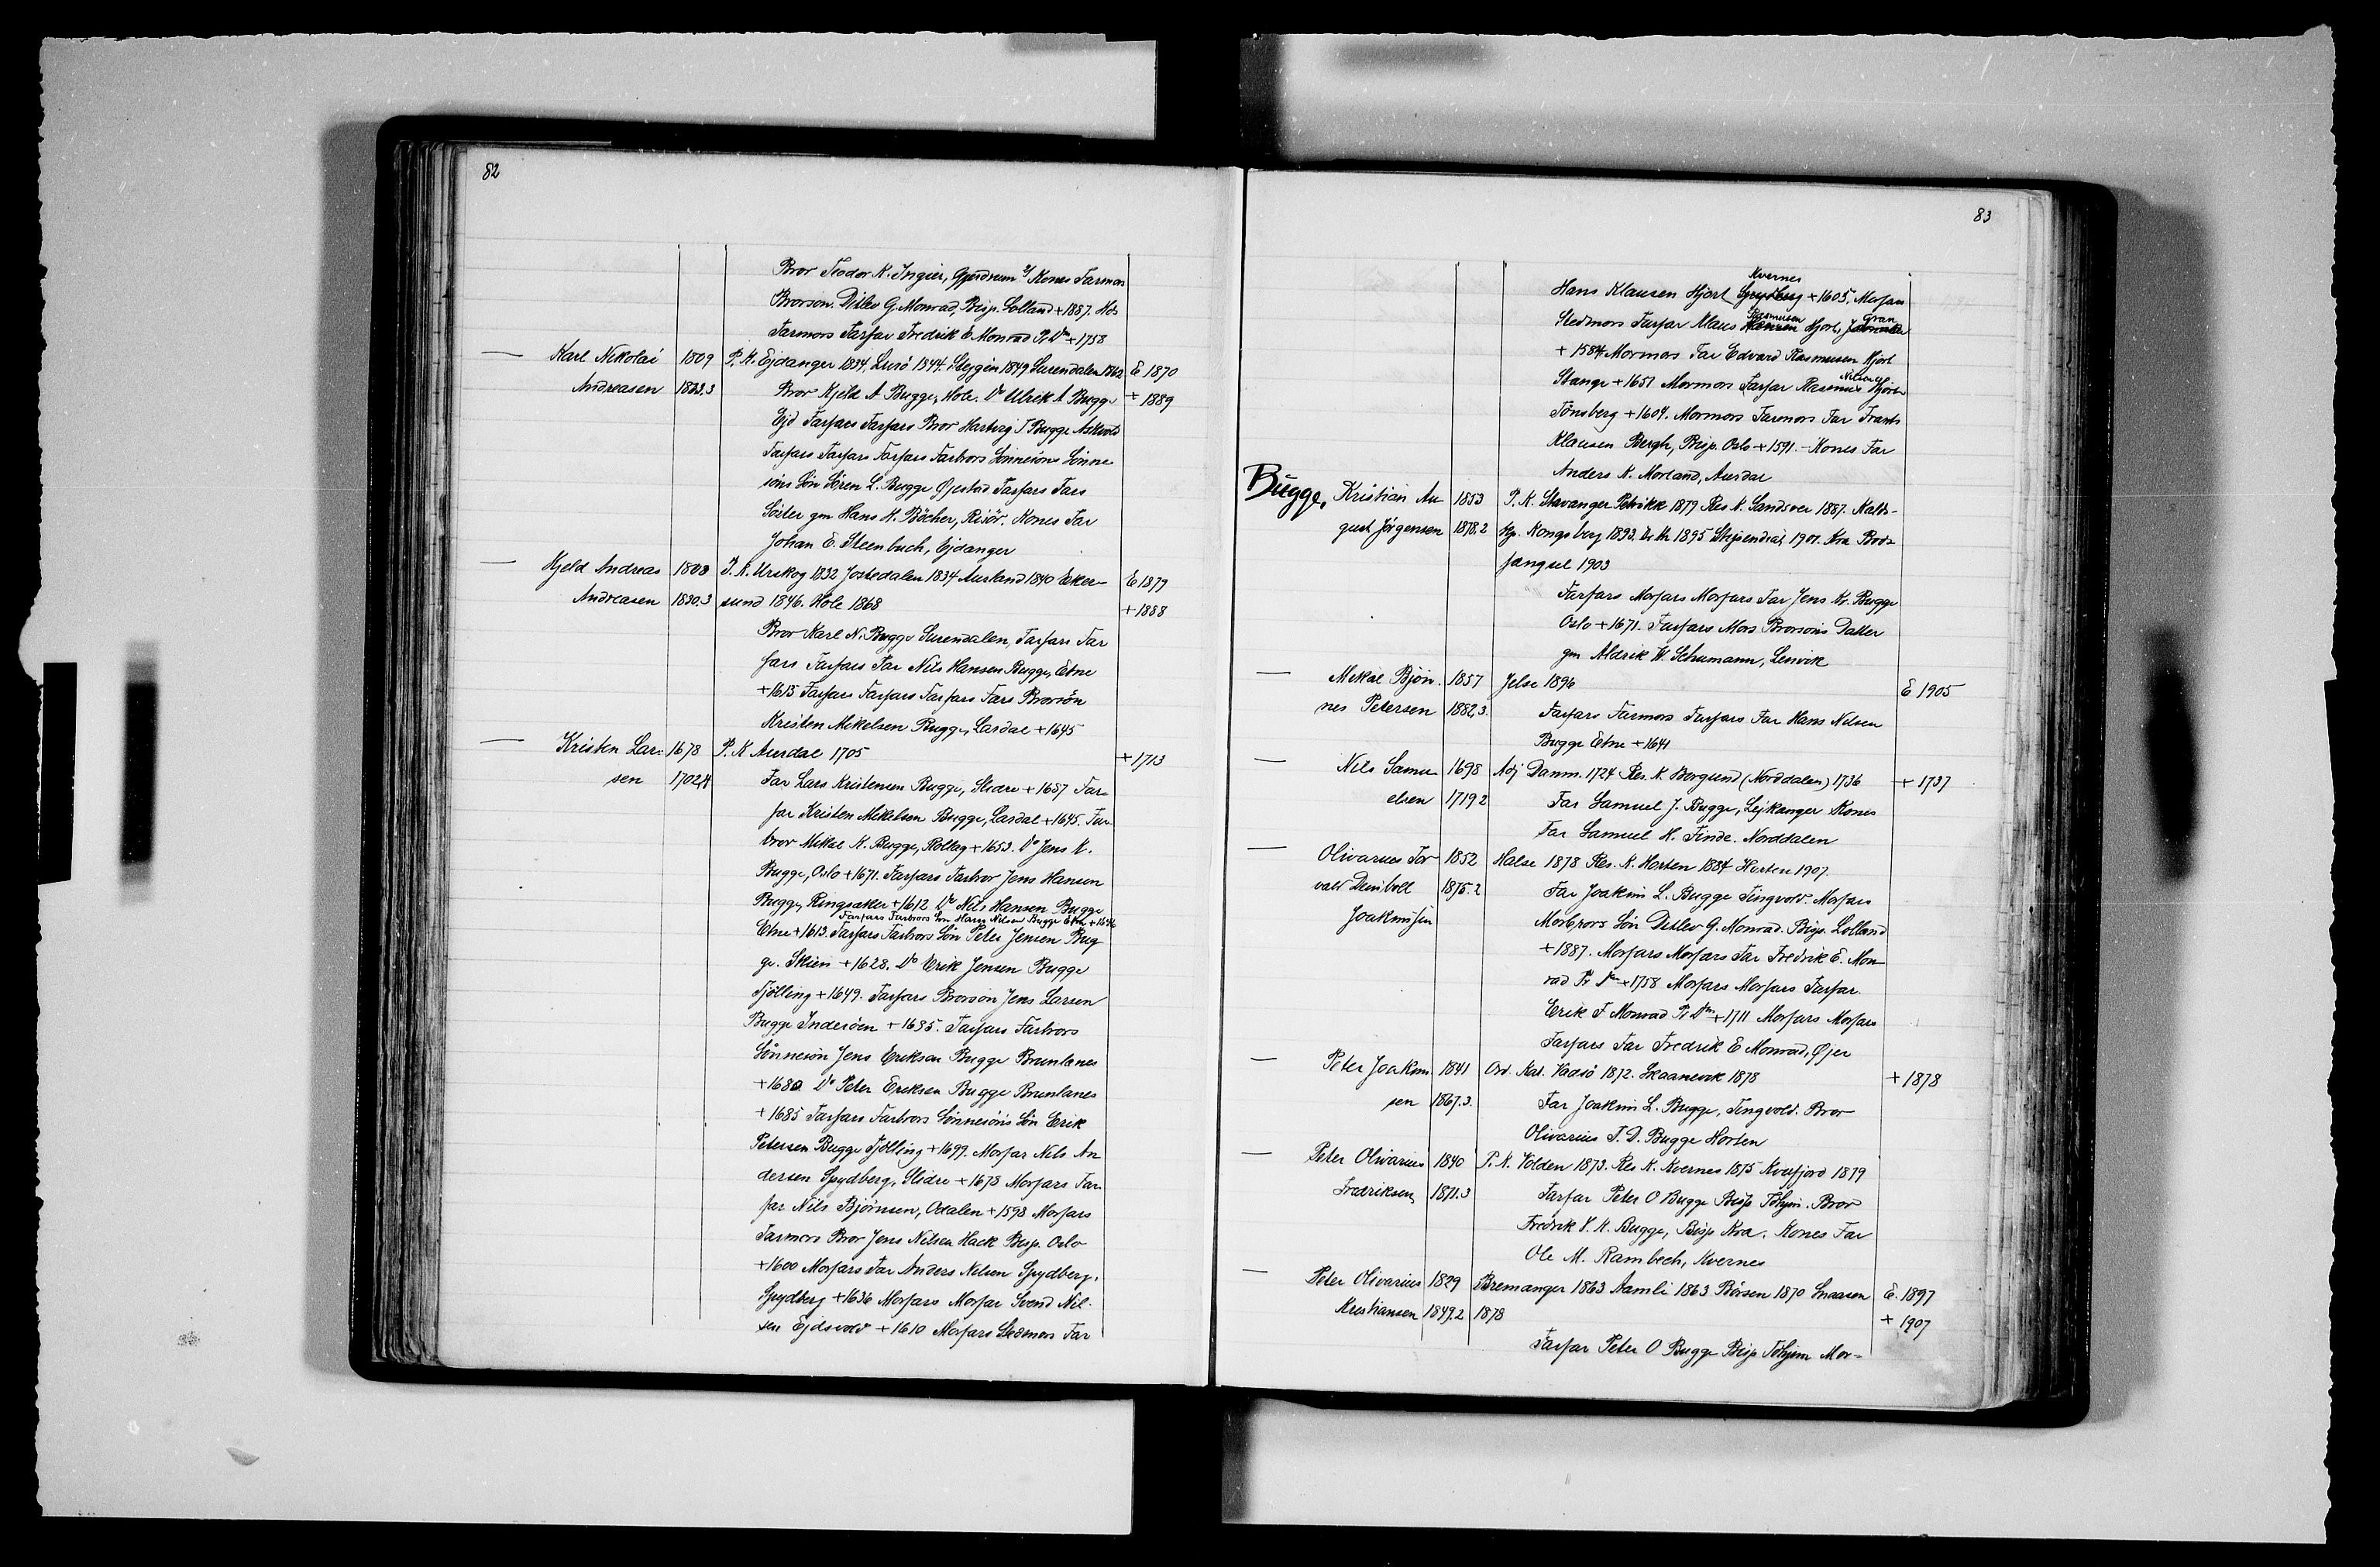 82
Bror Teodor K. Ingier, Gjerdrum Kones Farmors
Brorsøn. Ditlev G. Monrad, Bisp. Lolland +1887. Kds
Farmors Farfar Fredrik E. Monrad +1758
— Karl Nikolai 1809 P. K. Ejdanger 1834. Lurö 1844. Stejgen 1849 Surendalen 1862 E 1870
Andreasen 1833.3 Bror Kjeld A Bugge, Hole. Do Ulrik A Bugge + 1889
Ejd Farfars Farfars Bror Hartvig J Bugge Askvold
Farfars Farfars Farfars Farbrors Sønnesøns Sønne
søns Søn Søren L. Bugge Øjestad Farfars Fars
Søster gm Hans H. Böcher, Risör. Kones Far
Johan E. Steenbuch, Ejdanger
— Kjeld Andreas 1808 P. K. Urskog 1832 Jostedalen 1834 Aurland 1840 Eker- E 1879
Andreasen 1830.3 sund 1846. Hole 1868 + 1888
Bror Karl N. Bugge Surendalen, Farfars Far
fars Farfars Far Nils Hansen Bugge, Etne
+1613 Farfars Farfars Farfars Fars Brorsön
Kristen Mikelsen Bugge, Lardal +1645
— Kristen Lar- 1678 P. K Aurdal 1705 +1713
sen 1702,4 Far Lars Kristensen Bugge, Slidre +1687 Far-
far Kristen Mikelsen Bugge, Lardal +1645. Far-
bror Mikal K. Bugge, Rollag +1653. Do Jens K.
Bugge, Oslo +1671. Farfars Farbror Jens Hansen
Bugge, Ringsaker +1612 Do Nils Hansen Bugge
Farfars Farbrors Søn Hans Nilsen Bugge Etne +1641
Etne +1613. Farfars Farbrors Søn Peter Jensen Bug
ge. Skien +1628. Do Erik Jensen Bugge
Tjölling +1649. Farfars Brorsøn Jens Larsen
Bugge Inderöen +1685. Farfars Farbrors
Sönnesön Jens Eriksen Bugge Brunlanes
+1680 Do Peter Eriksen Bugge Brunlanes
+1685 Farfars Farbrors Sönnesöns Sön Erik
Petersen Bugge Tjölling +1699. Morfar Nils An
dersen Spydberg, Slidre +1678 Morfars Far-
far Nils Björnsen, Odalen +1598 Morfars
Farmors Bror Jens Nilsen Bisp. Oslo
+1600 Morfars Far Anders Nilsen Spydberg,
Spydberg +1636 Morfars Morfar Svend Nil-
sen Ejdsvold +1610 Morfars Stedmors Far
83
Kvernes
Hans Klausen Hjort +1605. Morfars
Rasmusen Gran
Stedmors Farfar Klaus Hjort,
+1584 Mormors Far Edvard Rasmusen Hjort
Nilsen
Stange +1651 Mormors Farfar Rasmus Hjort
Tönsberg +1604. Mormors Farmors Far Frants
Klausen Bergh, Bisp. Oslo +1591. - Kones Far
Anders K. Morland, Aurdal
Bugge, Kristian Au 1853 P. K. Stavanger Petrikk 1879 Res K. Sandsver 1887. Kald-
gust Jörgensen 1878.2 kp. Kongsberg 1893. 1895 Stipendiat 1901. Kra Bods-
fængsel 1903
Farfars Morfars Morfars Far Jens K. Bugge
Oslo +1671. Farfars Mors Brorsöns Datter
gm Aldrik W. Schumann, Lenvik
— Mikal Björ- 1857 Jelse 1896 E 1905
nes Petersen 1882.3. Farfars Farmors Farfars Far Hans Nilsen
Bugge Etne +1641
— Nils Samu- 1698 Adj Danm. 1724 Res. K. Borgund (Norddalen) 1736 + 1737
elsen 1719.2 Far Samuel J. Bugge, Lejkanger Kones
Far Samuel H. Finde. Norddalen
— Olivarius Tor- 1852 Halse 1878 Res. K. Horten 1884 Horten 1907.
vald Deinboll 1875.2 Far Joakim L. Bugge Tingvold. Morfars
Joakimsen Morbrors Sön Ditlev G. Monrad. Bisp. Lolland
+1887. Morfars Morfars Far Fredrik E. Mon-
rad +1758 Morfars Morfars Farfar.
Erik F Monrad +1711 Morfars Morfars
Farfars Far Fredrik E Monrad, Øjer
— Peter Joakim- 1841 Ord. Kat. Vadsö 1872. Skaanevik 1878 + 1878
sen 1867.3. Far Joakim L. Bugge, Tingvold. Bror
Olivarius T. D. Bugge Horten
— Peter Olivarius 1840 P. K. Volden 1873. Res K. Kvernes 1875 Kvæfjord 1879
Fredriksen 1871.3 Farfar Peter O Bugge Bisp Tóhjem. Bror
Fredrik V. K. Bugge, Bisp Kra. Kones Far
Ole M. Rambech, Kvernes
— Peter Olivarius 1829 Bremanger 1863 Aamli 1863 Börsen 1870 Snaasen E. 1897
Kristiansen 1849.2 1878 + 1907
Farfar Peter O Bugge Bisp Tóhjem Mor-